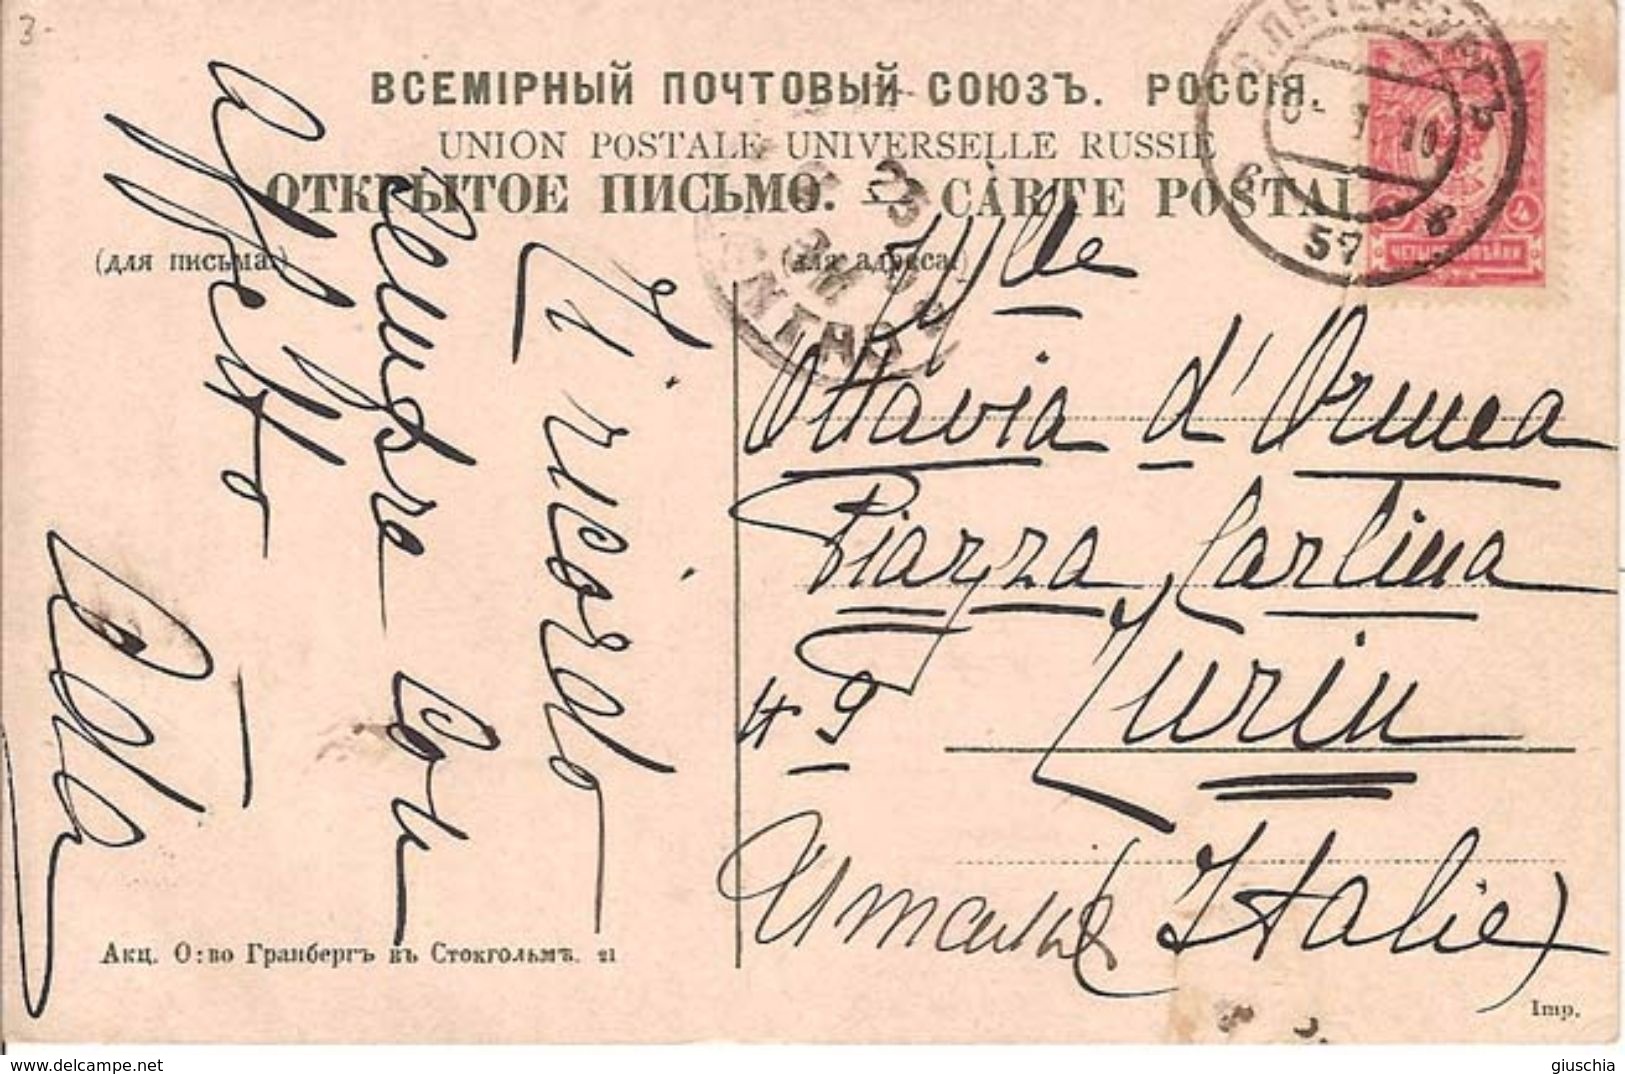 3-
ВСЕМІРНЫЙ ПОЧТОВЫЙ СОЮЗЪ. РОССІЯ.
UNION POSTALE UNIVERSELLE RUSSIE
ОТКРЫТОЕ ПИСЬМО. — CARTE POSTALE
(для письма.)
(для адреса.)
С.ПЕТЕРБУРГЪ
10
57
4
ЧЕТЫРЕ КОПѢЙКИ
25
TORINO
Ti ricordo
sempre con
affetto
Oda
Mlle
Ottavia d'Ormea
Piazza Carlina
# 9
Turin
Италія (Italie)
Акц. О:во Гранбергъ въ Стокгольмѣ. 21
Imp.
www.delcampe.net
giuschia